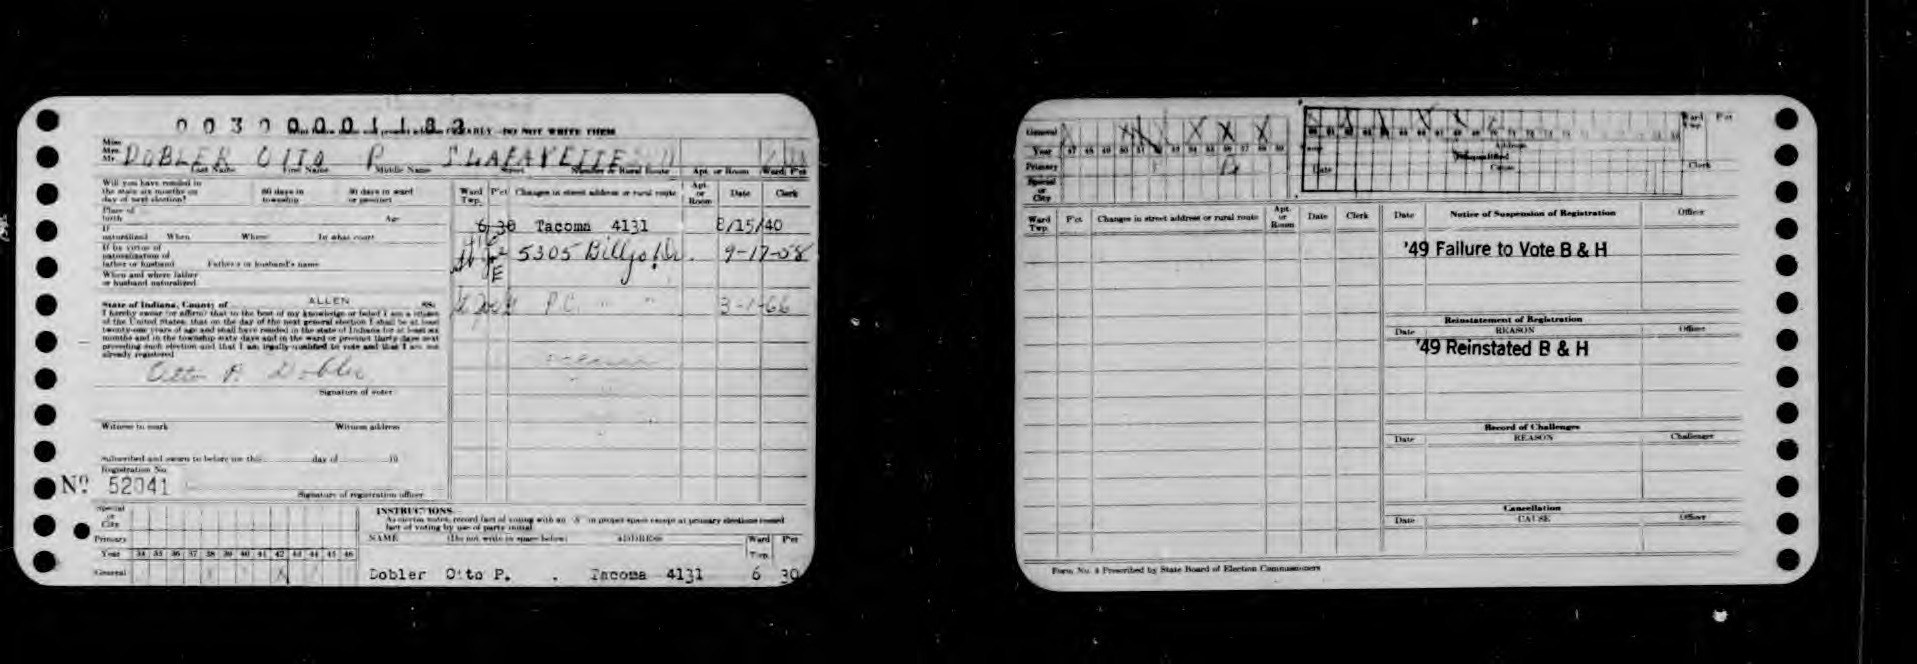 00300001182
CLEARLY—DO NOT WRITE THEM
Miss
Mrs.
Mr. DOBLER OTTO P. S LAFAYETTE
Last Name First Name Middle Name Street Number or Rural Route Apt. or Room Ward P'ct
Will you have resided in
the state six months on
day of next election?
60 days in
township
30 days in ward
or precinct
Place of
birth Age
If
naturalized When Where In what court
If by virtue of
naturalization of
father or husband Father's or husband's name
When and where father
or husband naturalized
State of Indiana, County of ALLEN SS:
I hereby swear (or affirm) that to the best of my knowledge or belief I am a citizen
of the United States; that on the day of the next general election I shall be at least
twenty-one years of age and shall have resided in the state of Indiana for at least six
months and in the township sixty days and in the ward or precinct thirty days next
preceding such election and that I am legally qualified to vote and that I am not
already registered
Otto P. Dobler
Signature of voter
Witness to mark Witness address
Subscribed and sworn to before me this day of 19
Registration No.
Nº 52041
Signature of registration officer
Ward
Twp. P'ct Changes in street address or rural route Apt.
or
Room Date Clerk
6 30 Tacoma 4131 8/15/40
E 5305 Dr. 9-17-58
P.C. " " 3-1-66
Special
or
City
Primary
Year 34 35 36 37 38 39 40 41 42 43 44 45 46
General
INSTRUCTIONS
As election notes, record fact of voting with an "X" in proper space except at primary elections record
fact of voting by use of party initial
NAME (Do not write in space below) ADDRESS Ward
Twp. P'ct
Dobler Otto P. Tacoma 4131 6 30
General
Year 47 48 49 50 51 53 54 55 56 57 58 59
Primary R
Special
or
City
Ward
Twp. P'ct
Address
Disqualified
Date Cause Clerk
Ward
Twp. P'ct Changes in street address or rural route Apt.
or
Room Date Clerk
Date Notice of Suspension of Registration Officer
'49 Failure to Vote B & H
Reinstatement of Registration
Date REASON Officer
'49 Reinstated B & H
Record of Challenges
Date REASON Challenger
Cancellation
Date CAUSE Officer
Form No. 4 Prescribed by State Board of Election Commissioners